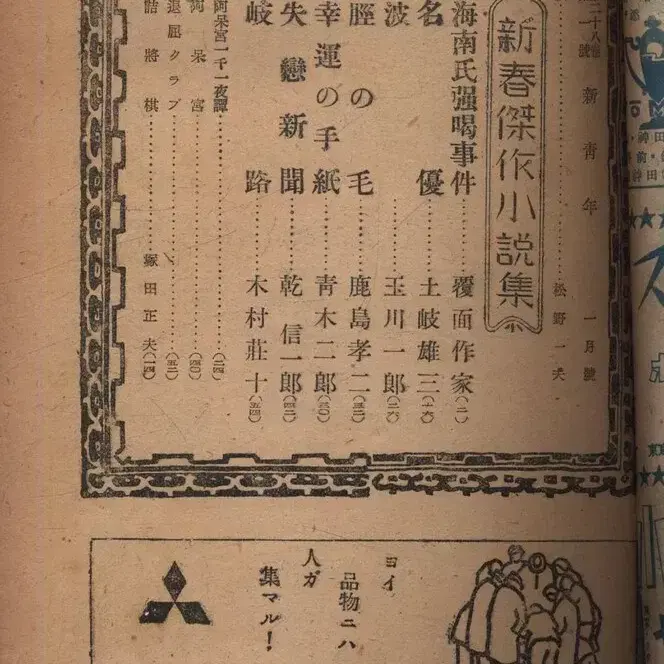 二十八卷
一號 新靑年 一月號
松野一夫
新春傑作小說集
海南氏强喝事件 覆面作家(二)
名優 土岐雄三(一六)
波 玉川一郎(二六)
脛の毛 鹿島孝二(三二)
幸運の手紙 靑木二郎(三〇)
失戀新聞 乾信一郎(四二)
岐路 木村莊十(五四)
阿呆宮一千一夜譚(二四)
阿呆宮(四〇)
退屈クラブ(五二)
詰將棋 塚田正夫(一四)
ヨイ
品物ニハ
人ガ
集マル!